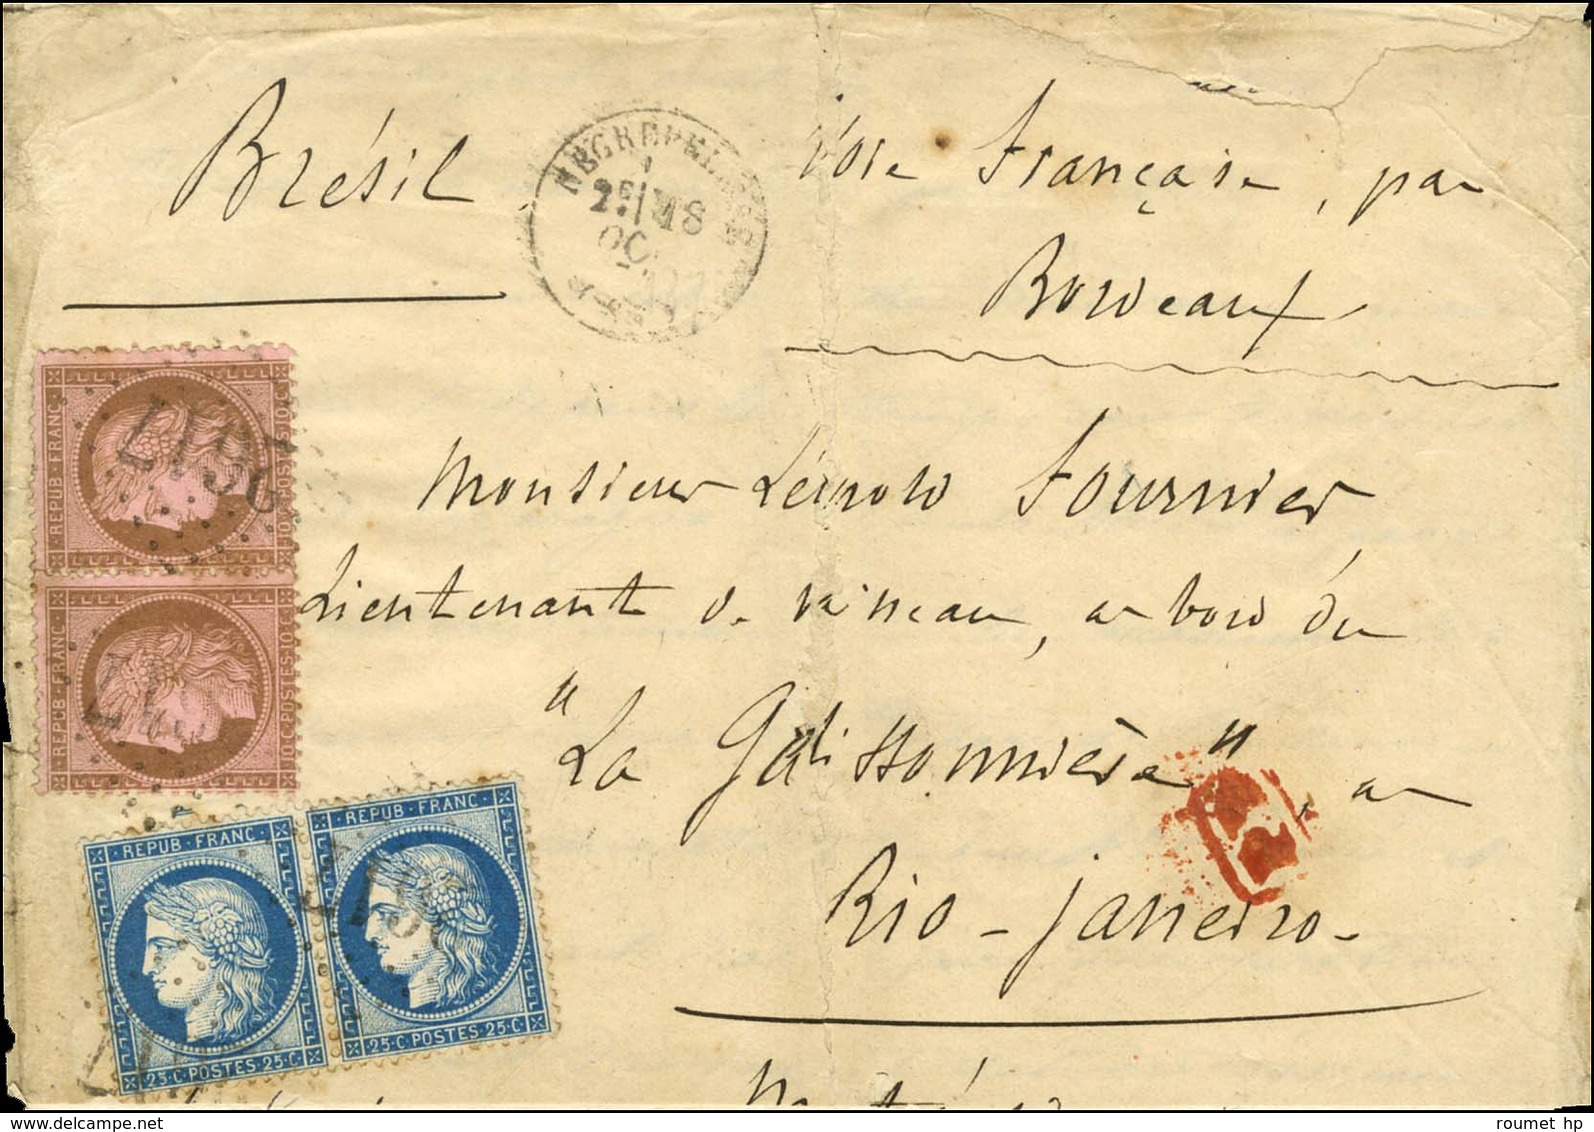 Brésil
Voie Française, par
Bordeaux
NEGREPELISSE
2E
18
OC
Monsieur Léopold Fournier
Lieutenant de vaisseau, à bord du
"La Galissonnière", à
Rio-Janeiro-
REPUB·FRANC·
10·C·POSTES·10·C·
2617
REPUB·FRANC·
10·C·POSTES·10·C·
REPUB·FRANC·
25·C·POSTES·25·C·
REPUB·FRANC·
25·C·POSTES·25·C·
roumet hp